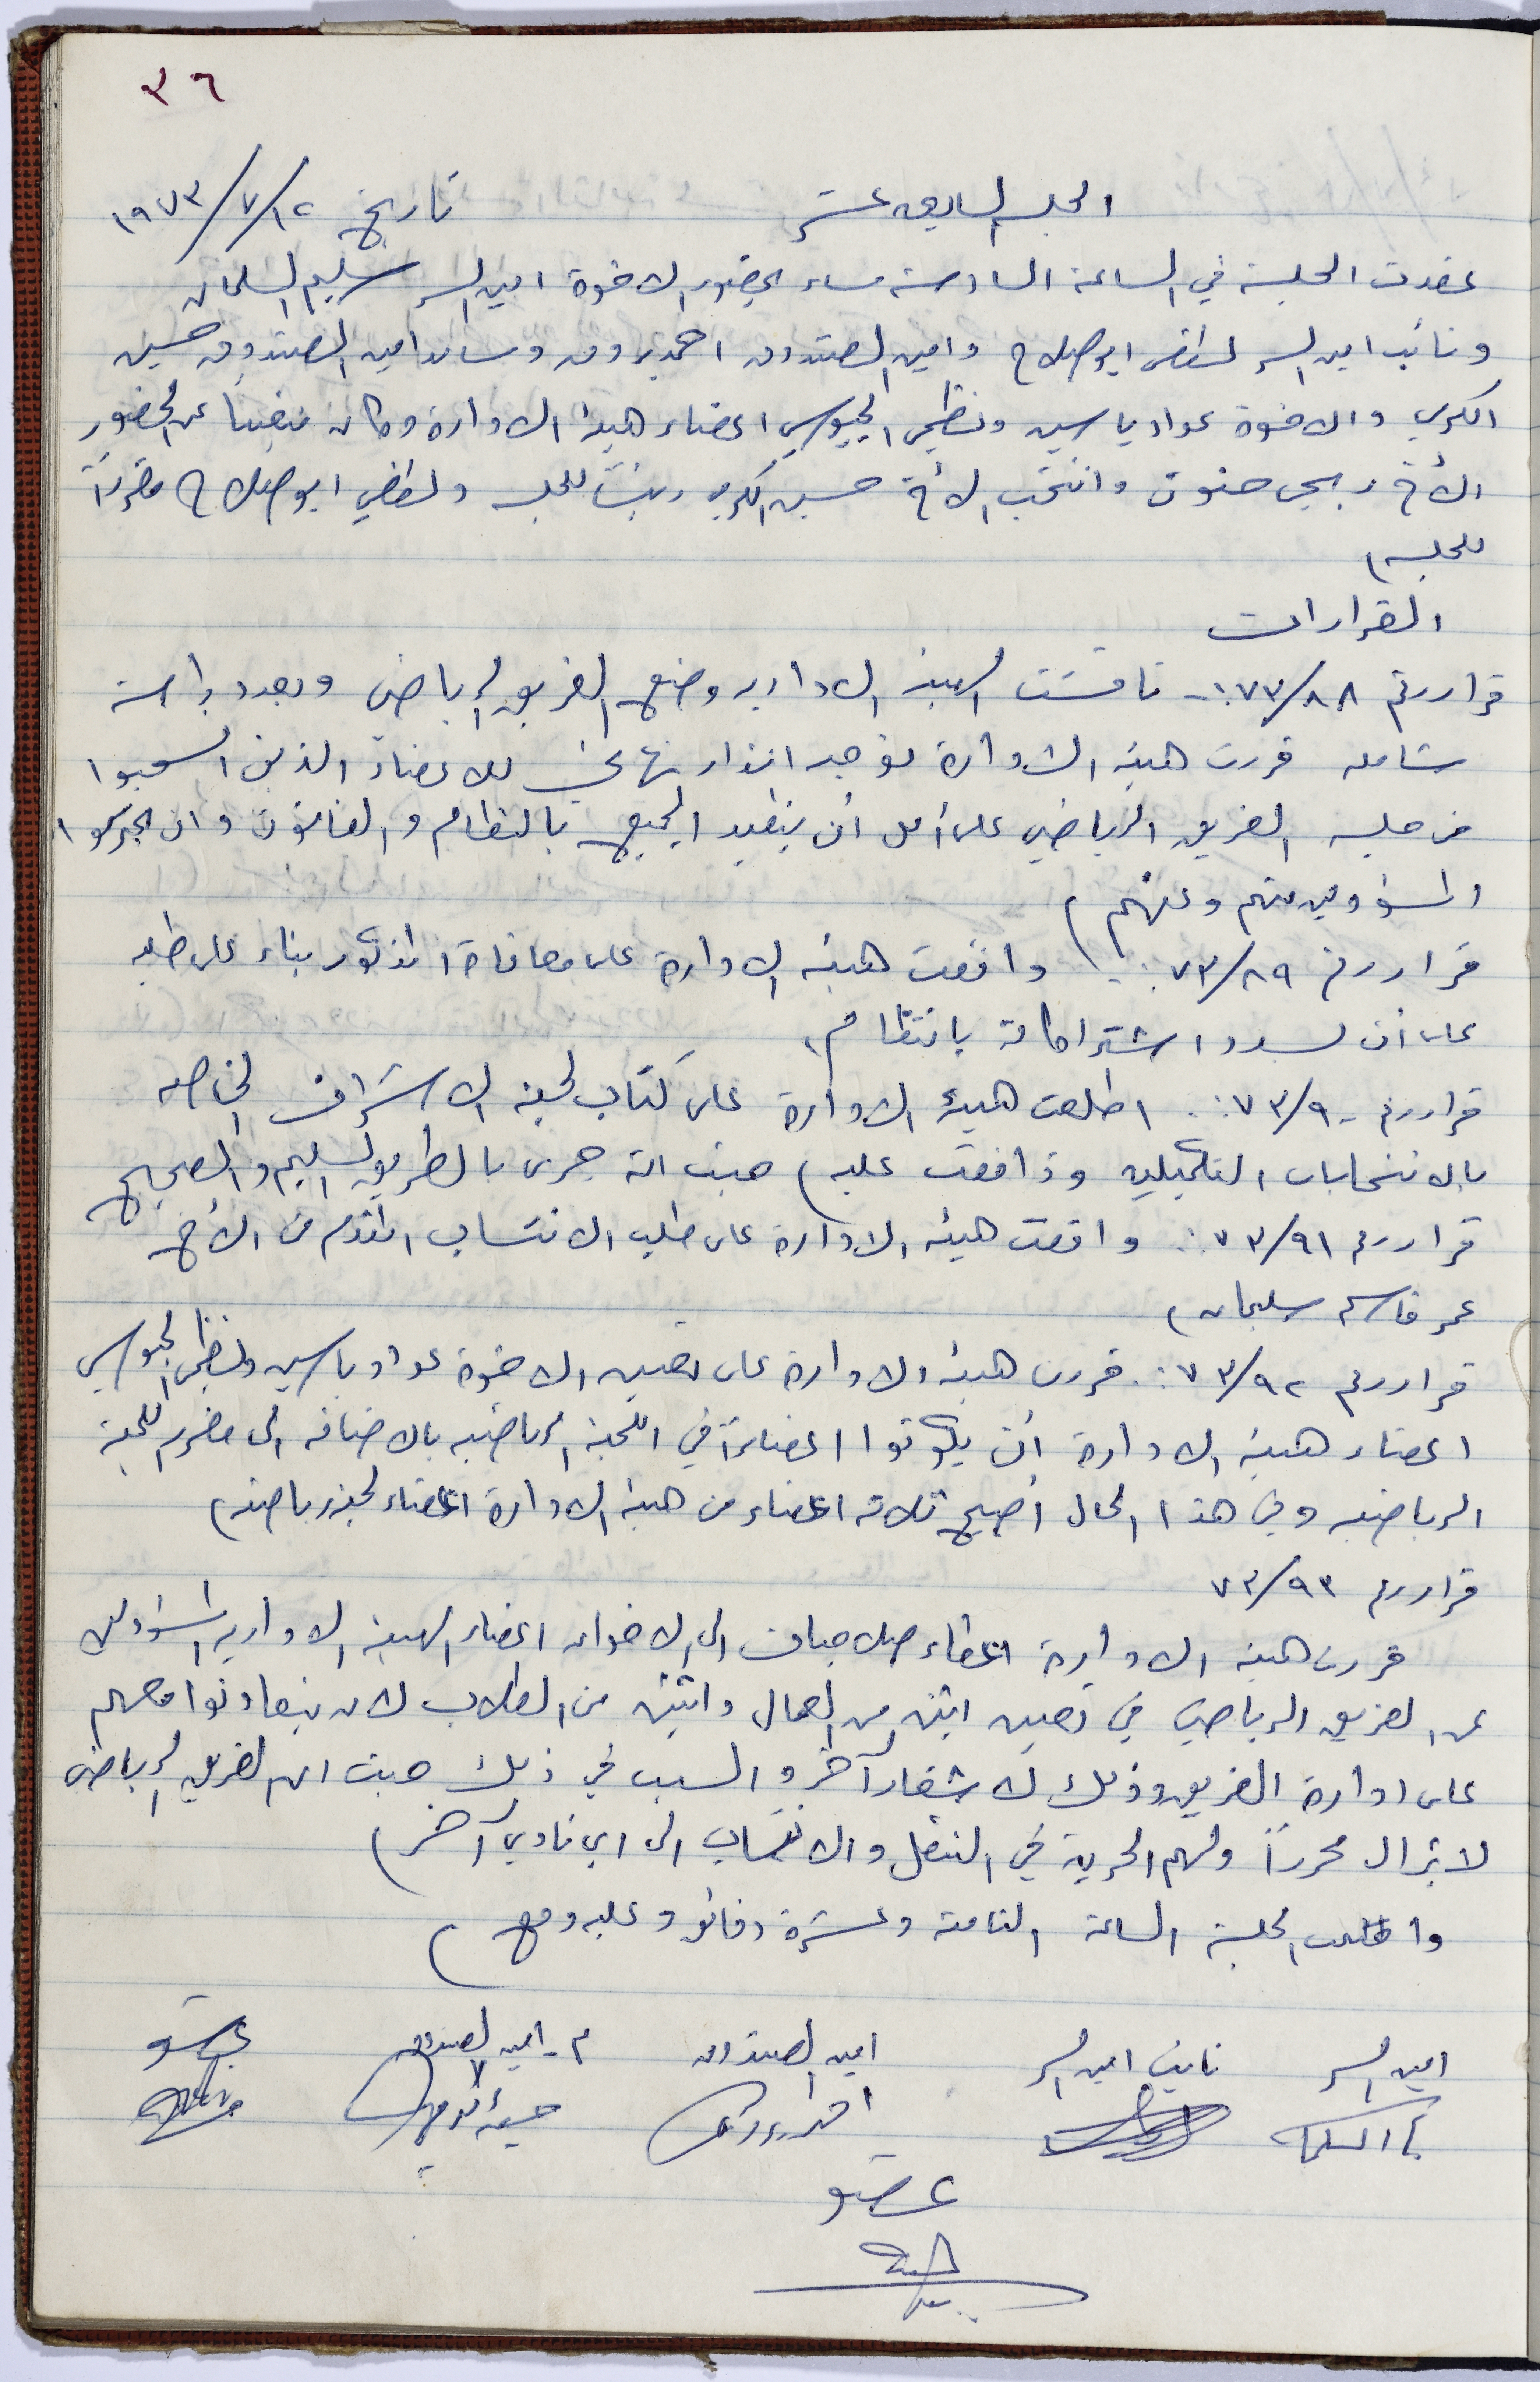 ٣٦
الجلسة السابعة عشر تاريخ ١٢/٧/١٩٧٣
عقدت الجلسة في الساعة السادسة مساء بحضور الاخوة امين السر سليم السلمان
ونائب امين السر لطفي ابو صلاح وامين الصندوق احمد زروق ومساعد امين الصندوق حسين
الكري والاخوة عواد ياسين ونظمي الجيوسي اعضاء هيئة الادارة وكان متغيباً عن الحضور
الأخ ربحي حنون وانتخب الأخ حسين الكري رئيساً للجلسه ولطفي ابو صلاح مقرراً
للجلسه ،
القرارات
قرار رقم ٨٨/٧٣ :- ناقشت الهيئة الاداريه وضع الفريق الرياضي وبعد دراسة
شامله قررت هيئة الادارة توجيه انذار نهائي للاعضاء الذين انسحبوا
من جلسه الفريق الرياضي على أمل أن يتقيد الجميع بالنظام والقانون وان يحترموا
المسؤولين منهم وعنهم ،
قرار رقم ٨٩/٧٣ :- وافقت هيئة الادارة على معافاة المذكور بناء على طلبه
على أن يسدد اشتراكاته بانتظام ،
قرار رقم ٩٠/٧٣ :- اطلعت هيئة الادارة على كتاب لجنة الاشراف الخاصه
بالانتخابات التكميليه ووافقت عليه ، حيث انه جرى بالطريق السليم والصحيح
قرار رقم ٩١/٧٣ :- وافقت هيئة الادارة على طلب الانتساب المقدم من الأخ
عمر قاسم سليمان ،
قرار رقم ٩٢/٧٣ :- قررت هيئة الادارة على تعيين الاخوة عواد ياسين ونظمي الجيوسي
اعضاء هيئة الادارة أن يكونوا اعضاءً في اللجنة الرياضيه بالاضافه الى مقرر اللجنة
الرياضيه وفي هذا الحال أصبح ثلاثه اعضاء من هيئة الادارة اعضاء لجنة رياضيه ،
قرار رقم ٩٣/٧٣
قررت هيئة الادارة اعطاء صلاحيات الى الاخوان اعضاء الهيئة الاداريه المسؤولين
عن الفريق الرياضي في تعيين اثنين من العمال واثنين من الطلاب لان يتعاونوا معهم
على ادارة الفريق وذلك لاشعار آخر والسبب في ذلك حيث ان الفريق الرياضي
لا يزال محرراً ولهم الحرية في التنقل والانتساب الى اي نادي آخر ،
واختتمت الجلسة الساعة الثامنة وعشرة دقائق وعليه وقع ،
امين السر نائب امين السر امين الصندوق م. امين الصندوق عضو
عضو